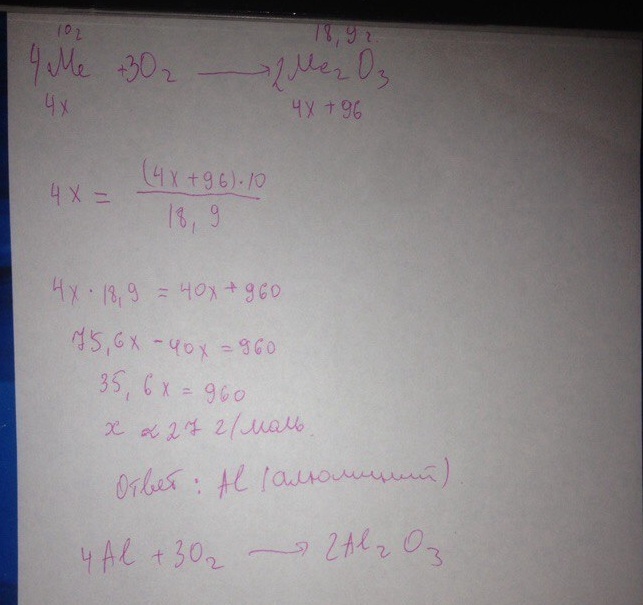 10г 18,9 г.
4Me + 3O₂ ⟶ 2Me₂O₃
4x 4x + 96
4x = (4x + 96) · 10 / 18,9
4x · 18,9 = 40x + 960
75,6x - 40x = 960
35,6x = 960
x ≈ 27 г/моль.
Ответ: Al (алюминий)
4Al + 3O₂ ⟶ 2Al₂O₃